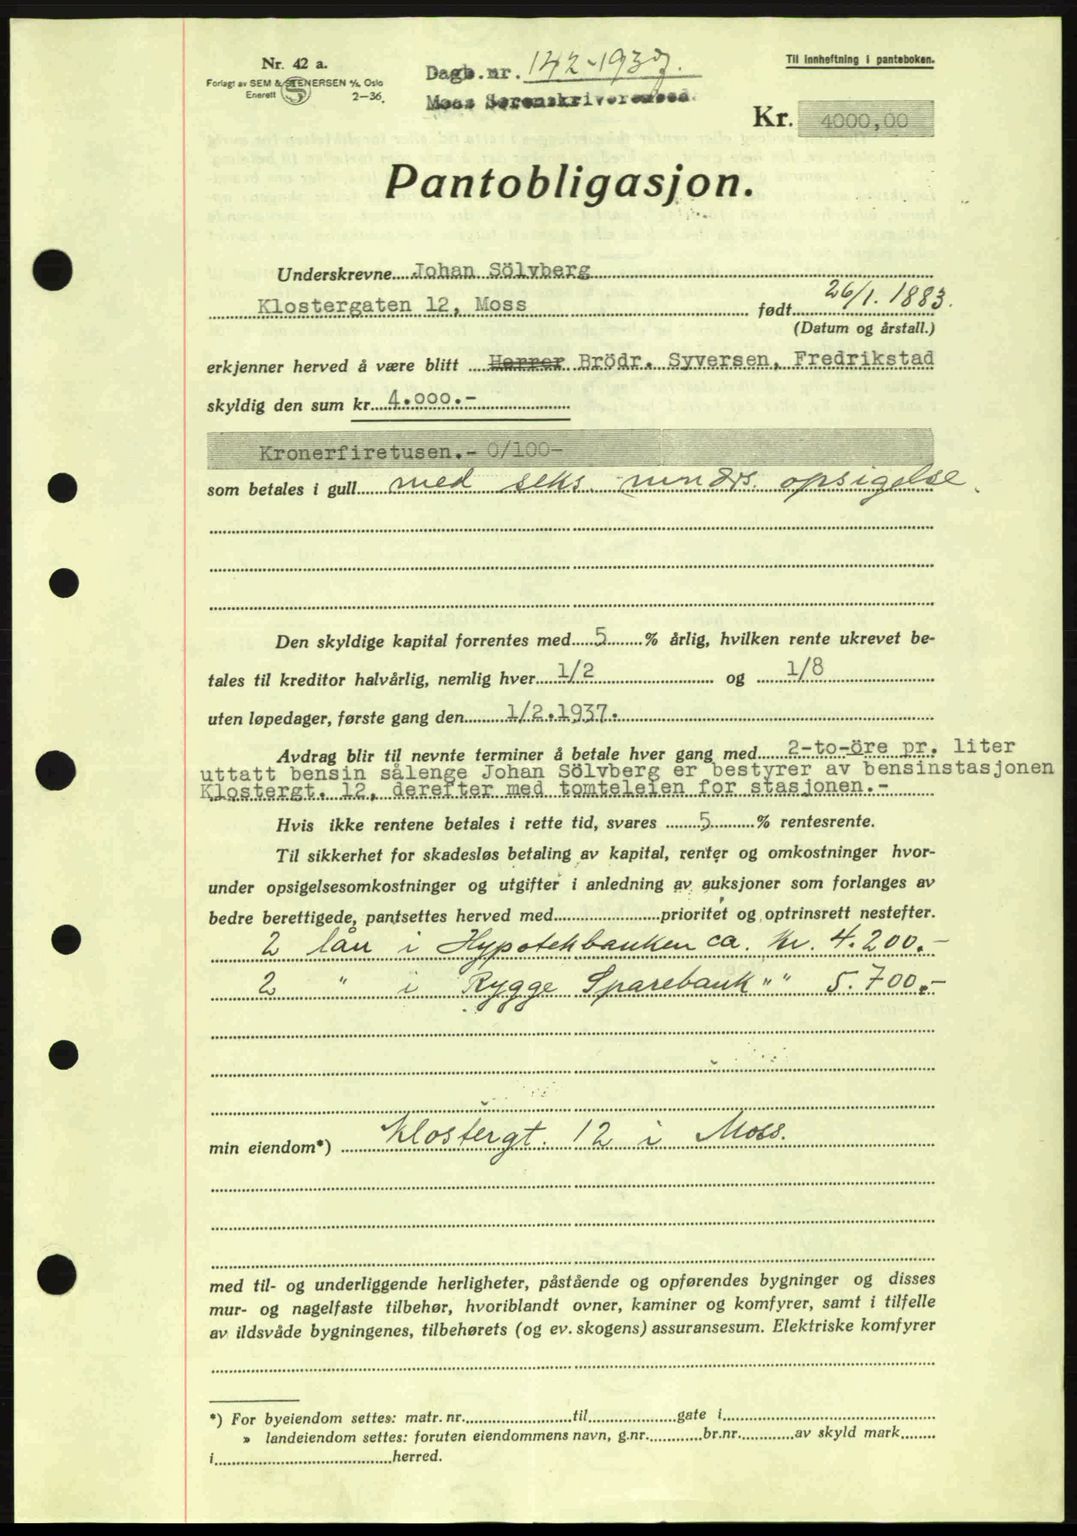 Nr. 42 a.
Forlagt av SEM & STENERSEN A/S, Oslo
Enerett
2-36.
Dagb.nr. 142-1937.
Moss Sorenskriverembed.
Til innheftning i panteboken.
Kr. 4000,00
Pantobligasjon.
Underskrevne Johan Sölvberg
Klostergaten 12, Moss født 26/1. 1883.
(Datum og årstall.)
erkjenner herved å være blitt Herrer Brödr. Syversen, Fredrikstad
skyldig den sum kr. 4.000.-
Kronerfiretusen.- 0/100-
som betales i gull med seks mndrs. opsigelse.
Den skyldige kapital forrentes med 5 % årlig, hvilken rente ukrevet be-
tales til kreditor halvårlig, nemlig hver 1/2 og 1/8
uten løpedager, første gang den 1/2.1937.
Avdrag blir til nevnte terminer å betale hver gang med 2-to-öre pr. liter
uttatt bensin sålenge Johan Sölvberg er bestyrer av bensinstasjonen
Klostergt. 12, derefter med tomteleien for stasjonen.-
Hvis ikke rentene betales i rette tid, svares 5 % rentesrente.
Til sikkerhet for skadesløs betaling av kapital, renter og omkostninger hvor-
under opsigelsesomkostninger og utgifter i anledning av auksjoner som forlanges av
bedre berettigede, pantsettes herved med prioritet og optrinsrett nestefter.
2 lån i Hypotekbanken ca. Kr. 4.200.-
2 " i Rygge Sparebank " " 5.700.-
min eiendom*) Klostergt. 12 i Moss.
med til- og underliggende herligheter, påstående og opførendes bygninger og disses
mur- og nagelfaste tilbehør, hvoriblandt ovner, kaminer og komfyrer, samt i tilfelle
av ildsvåde bygningenes, tilbehørets (og ev. skogens) assuransesum. Elektriske komfyrer
*) For byeiendom settes: matr. nr. til gate i
» landeiendom settes: foruten eiendommens navn, g.nr. br.nr. av skyld mark
i herred.